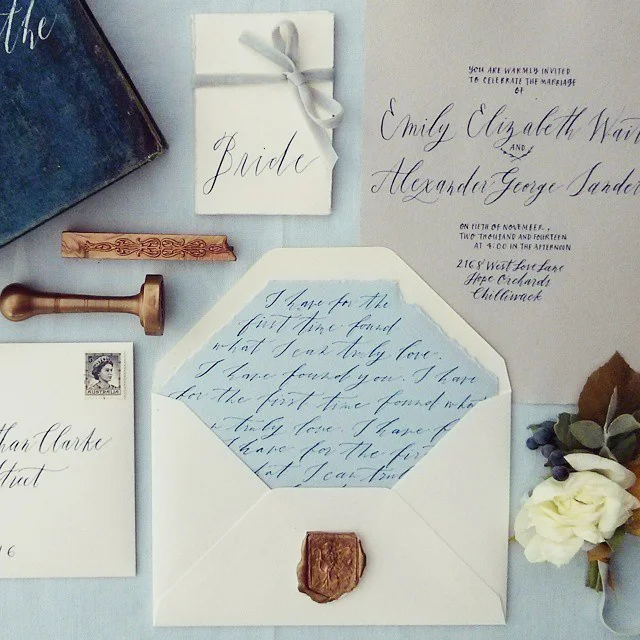 the
Bride
YOU ARE WARMLY INVITED
TO CELEBRATE THE MARRIAGE
OF
Emily Elizabeth
AND
Alexander George
ON FIFTH OF NOVEMBER,
TWO THOUSAND AND FOURTEEN
AT 4:00 IN THE AFTERNOON
2168 West Love Lane
Hope Orchards
Chilliwack
I have for the
first time found
what I can truly love.
I have found you. I have
for the first time found what
truly love. I have f
have for the fir
hat I can trul
AUSTRALIA
Clarke
treet